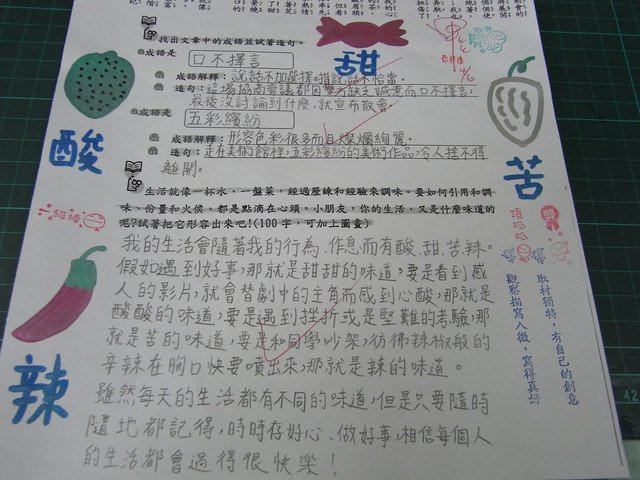 找出文章中的成語並試著造句。
成語是 口不擇言
成語解釋：說話不加選擇
造句：這場協商會議都因雙方缺乏誠意而口不擇言，
最後沒討論到什麼，就宣布散會。
成語是 五彩繽紛
成語解釋：形容色彩很多而且燦爛絢麗。
造句：走在美術館裡，五彩繽紛的美術作品，令人捨不得
離開。
生活就像一杯水、一盤菜，經過歷練和經驗來調味。要如何引用和調
味、份量和火侯。都是點滴在心頭。小朋友，你的生活，又是什麼味道的
呢?試著把它形容出來吧!(100字，可加上圖畫)
我的生活會隨著我的行為、作息而有酸、甜、苦、辣。
假如遇到好事，那就是甜甜的味道，要是看到感
人的影片，就會替劇中的主角而感到心酸，那就是
酸酸的味道，要是遇到挫折或是堅難的考驗，那
就是苦的味道，要是和同學吵架，彷彿辣椒般的
辛辣在胸口快要噴出來，那就是辣的味道。
雖然每天的生活都有不同的味道，但是只要隨時
隨地都記得，時時存好心、做好事，相信每個人
的生活都會過得很快樂！
酸
甜
苦
辣
一級棒
頂呱呱
取材獨特，有自己的創意
觀察描寫入微，寫得真好